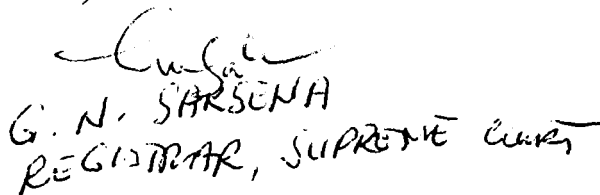 G. N. SAKSENA
REGISTRAR, SUPREME COURT